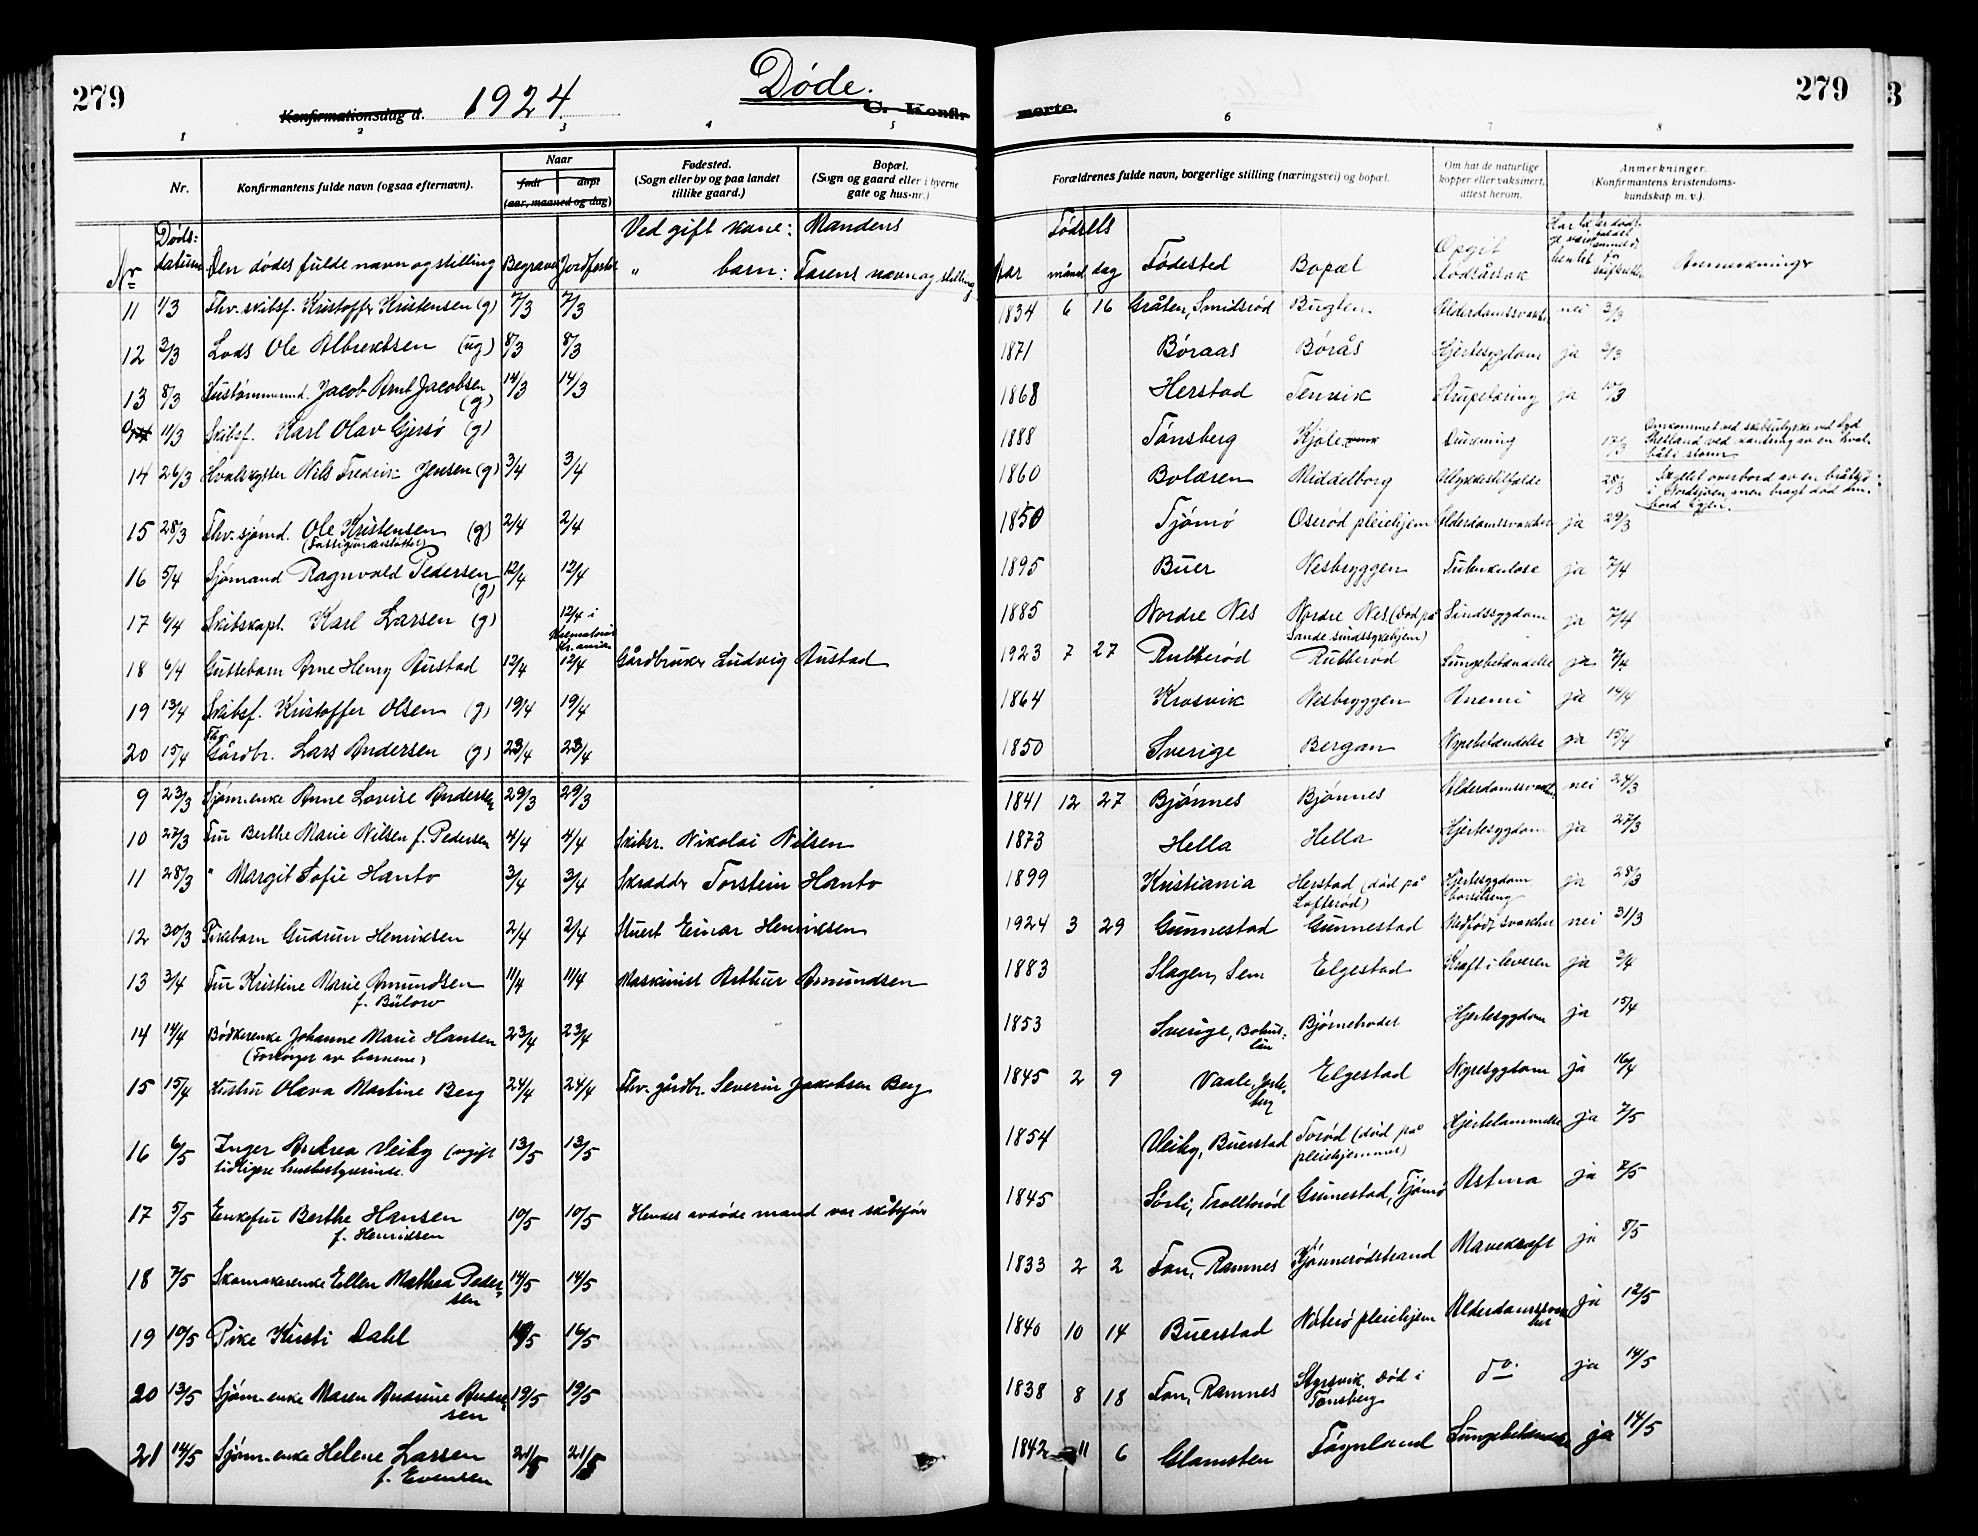 279
Konfirmationsdag d. 1924
Døde.
C. Konfirmerte.
279
3
1 2 3 4 5 6 7 8
Nr.
Konfirmantens fulde navn (ogsaa efternavn).
Naar
født døpt
(aar, maaned og dag)
Fødested.
(Sogn eller by og paa landet
tillike gaard.)
Bopæl.
(Sogn og gaard eller i byerne
gate og hus-nr.)
Forældrenes fulde navn, borgerlige stilling (næringsvei) og bopæl.
Om hat de naturlige
kopper eller vaksinert,
attest herom.
Anmerkninger.
(Konfirmantens kristendoms-
kundskap m. v.).
Nr Døds: datum Den dødes fulde navn og stilling Begravet Jordfæstet
Ved gift kone: Mandens
" barn: Farens navn og stilling
Fødsels
Aar måned dag Fødested Bopæl Opgit dødsårsak Anmerkninger
11 1/3 Fhv. skibsf. Kristoffer Kristensen (g) 7/3 7/3 1834 6 16 Gråten, Smidsrød Buglen Alderdomssvakhet nei 3/3
12 3/3 Lods Ole Albrektsen (ug) 8/3 8/3 1871 Børaas Børås Hjertesygdom ja 3/3
13 8/3 Hustømmermd. Jacob Arnt Jacobsen (g) 14/3 14/3 1868 Herstad Tenvik Strupetæring ja 10/3
11/3 Skibsf. Karl Olav Gjersø (g) 1888 Tønsberg Kjole Drukning 17/3 Omkommet ved skibsulykke ved Syd
Shetland ved kantring av en hval-
båt i storm
14 26/3 Hvalskytter Nils Fredrik Jensen (g) 3/4 3/4 1860 Bolæren Middelborg Ulykkestilfælde 28/3 Skyllet overbord av en bråtsjø
i Nordsjøen, men bragt død om-
bord igjen.
15 28/3 Fhv. sjømd. Ole Kristensen (g) 2/4 2/4 1850 Tjømø Oserød pleiehjem Alderdomssvakhet ja 29/3
(Fattigunderstøttet)
16 5/4 Sjømand Ragnvald Pedersen (g) 12/4 12/4 1895 Buer Nesbryggen Tuberkulose ja 7/4
17 6/4 Skibskapt. Karl Larsen (g) 12/4 i Krematoriet Kr.ania 1885 Nordre Nes Nordre Nes (død på Sande sindssykehjem) Sindssygdom ja 7/4
18 6/4 Guttebarn Arne Henry Austad 12/4 12/4 Gårdbruker Ludvig Austad 1923 7 27 Rubberød Rubberød Lungebetændelse ja 7/4
19 13/4 Skibsf. Kristoffer Olsen (g) 19/4 19/4 1864 Krosvik Nesbryggen Anemi ja 14/4
20 15/4 Fhv. Gårdbr. Lars Andersen (g) 23/4 23/4 1850 Sverige Bergan Nyrebetændelse ja 15/4
9 23/3 Sjøm.enke Anne Lovise Andersen 29/3 29/3 1841 12 27 Bjønnes Bjønnes Alderdomssvakhet nei 24/3
10 27/3 Fru Berthe Marie Nilsen f. Pedersen 4/4 4/4 Skibsr. Nikolai Nilsen 1873 Hella Hella Hjertesygdom ja 27/3
11 28/3 " Margit Sofie Hanto 3/4 3/4 Skrædder Torstein Hanto 1899 Kristiania Herstad (død på Lofterød) Hjertesygdom barselseng ja 28/3
12 30/3 Pikebarn Gudrun Henriksen 2/4 2/4 Stuert Einar Henriksen 1924 3 29 Gunnestad Gunnestad Medfødt svakhet nei 31/3
13 3/4 Fru Kristine Marie Amundsen 11/4 11/4 Maskinist Arthur Amundsen 1883 Slagen, Sem Elgestad Kræft i leveren ja 3/4
f. Bülow
14 14/4 Bødkerenke Johanne Marie Hansen 23/4 23/4 1853 Sverige, Bohuslän Bjørnebodet Hjertesygdom ja 15/4
(Forsørget av barnene)
15 15/4 Hustru Olava Martine Berg 24/4 24/4 Fhv. gårdbr. Severin Jakobsen Berg 1845 2 9 Vaale Elgestad Nyresygdom ja 16/4
16 6/5 Inger Andrea Veiby (ugift 13/5 13/5 1854 Veiby, Buerstad Torød (død på pleiehjemmet) Hjertelammelse ja 7/5
tidligere husbestyrerinde.
17 5/5 Enkefru Berthe Hansen 10/5 10/5 Hendes avdøde mand var skibsfør 1845 Sørli, Trollborød Gunnestad, Tjømø Astma ja 7/5
f. Henriksen
18 7/5 Skomakerenke Ellen Mathea Pedersen 14/5 14/5 1833 2 2 Fon, Ramnes Kjønnerødstrand Mavekræft ja 8/5
19 10/5 Pike Kirsti Dahl 16/5 16/5 1840 10 14 Buerstad Nøterø pleiehjem Alderdomssvakhet ja 12/5
20 13/5 Sjøm.enke Maren Andrine Andersen 19/5 19/5 1838 8 18 Fon, Ramnes Styrsvik, død i Tønsberg do. ja 14/5
21 14/5 Sjøm.enke Helene Larsen 21/5 21/5 1842 11 6 Glomsten Føynland Lungebetændelse ja 14/5
f. Evensen